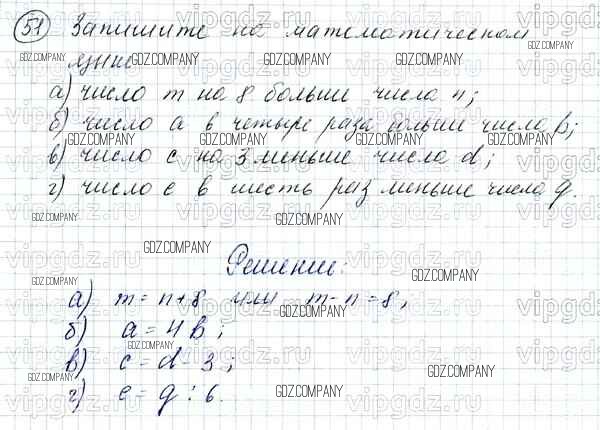 51 Запишите на математическом
языке
а) число m на 8 больше числа n;
б) число a в четыре раза больше числа b;
в) число c на 3 меньше числа d;
г) число e в шесть раз меньше числа q.
Решение:
а) m = n + 8 или m - n = 8;
б) a = 4b;
в) c = d - 3;
г) e = q : 6.
GDZ.COMPANY
vipgdz.ru